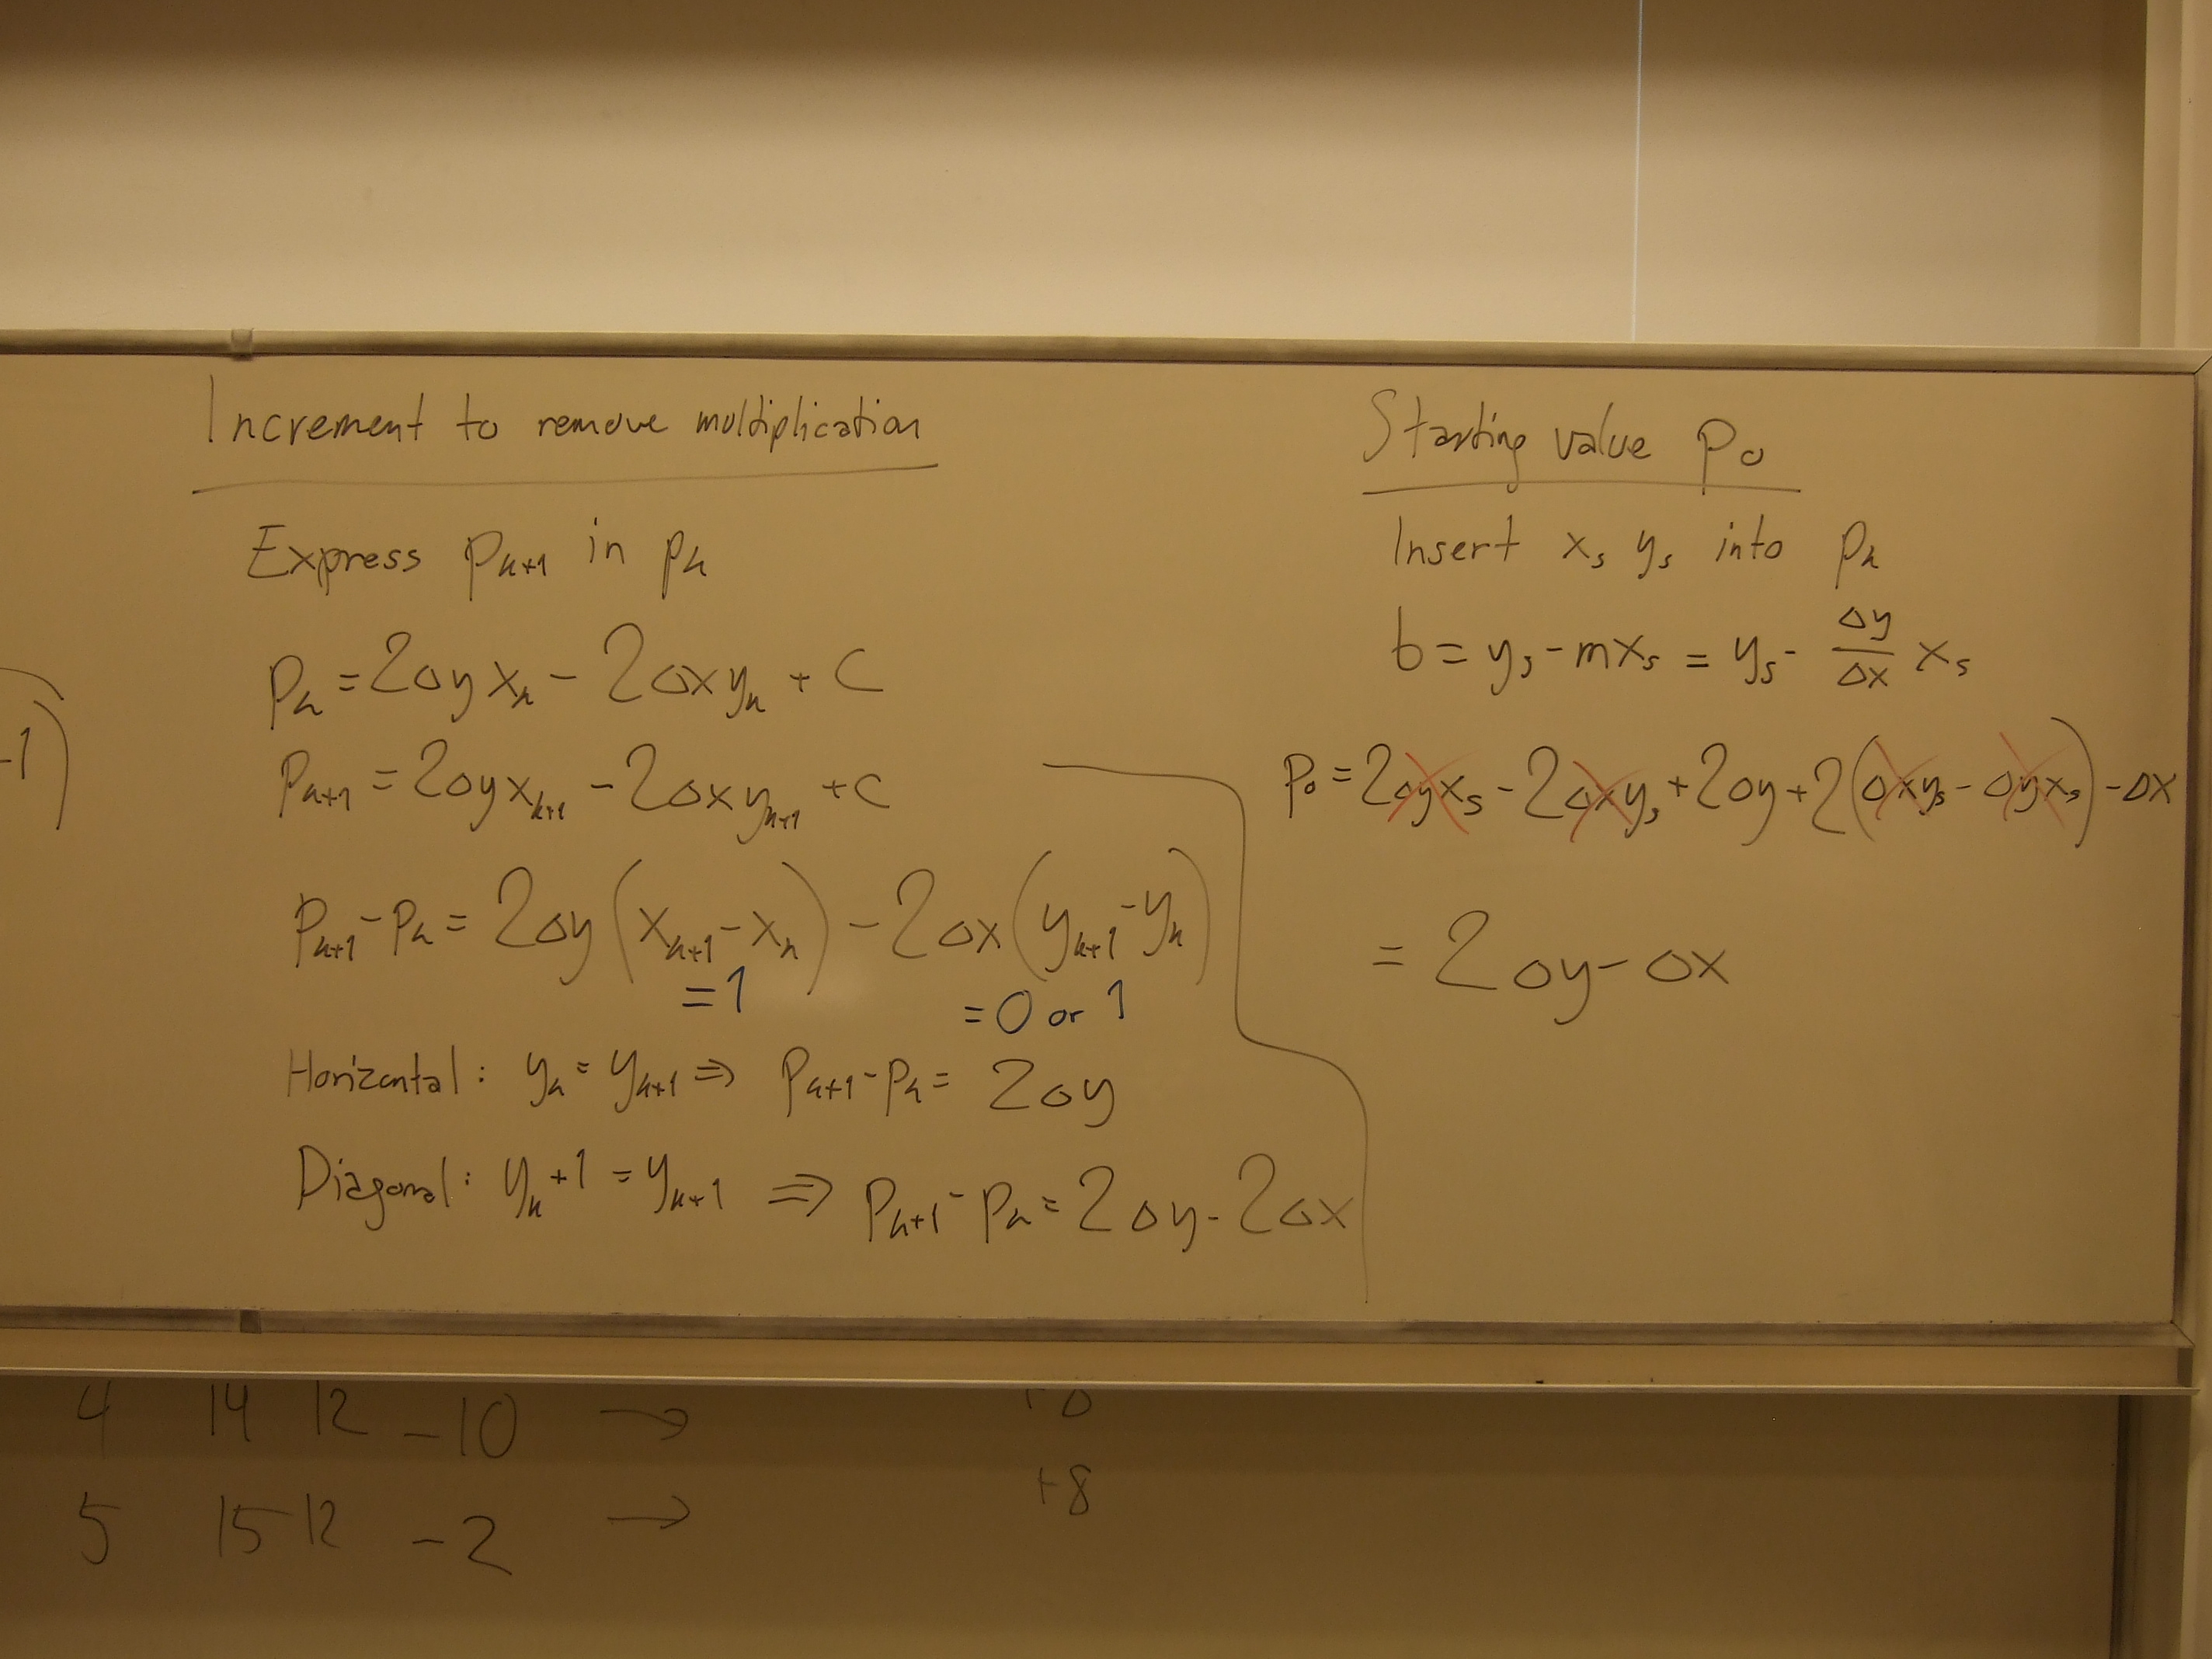 -1)
Increment to remove multiplication
Express pₖ₊₁ in pₖ
pₖ = 2Δy xₖ - 2Δx yₖ + C
pₖ₊₁ = 2Δy xₖ₊₁ - 2Δx yₖ₊₁ + C
pₖ₊₁ - pₖ = 2Δy (xₖ₊₁ - xₖ) - 2Δx (yₖ₊₁ - yₖ)
= 1 = 0 or 1
Horizontal: yₖ = yₖ₊₁ ⇒ pₖ₊₁ - pₖ = 2Δy
Diagonal: yₖ + 1 = yₖ₊₁ ⇒ pₖ₊₁ - pₖ = 2Δy - 2Δx
Starting value p₀
Insert xₛ yₛ into pₖ
b = yₛ - mxₛ = yₛ - Δy/Δx xₛ
p₀ = 2Δyxₛ - 2Δxyₛ + 2Δy + 2(Δxyₛ - Δyxₛ) - Δx
= 2Δy - Δx
4 14 12 -10 →
5 15 12 -2 → +8